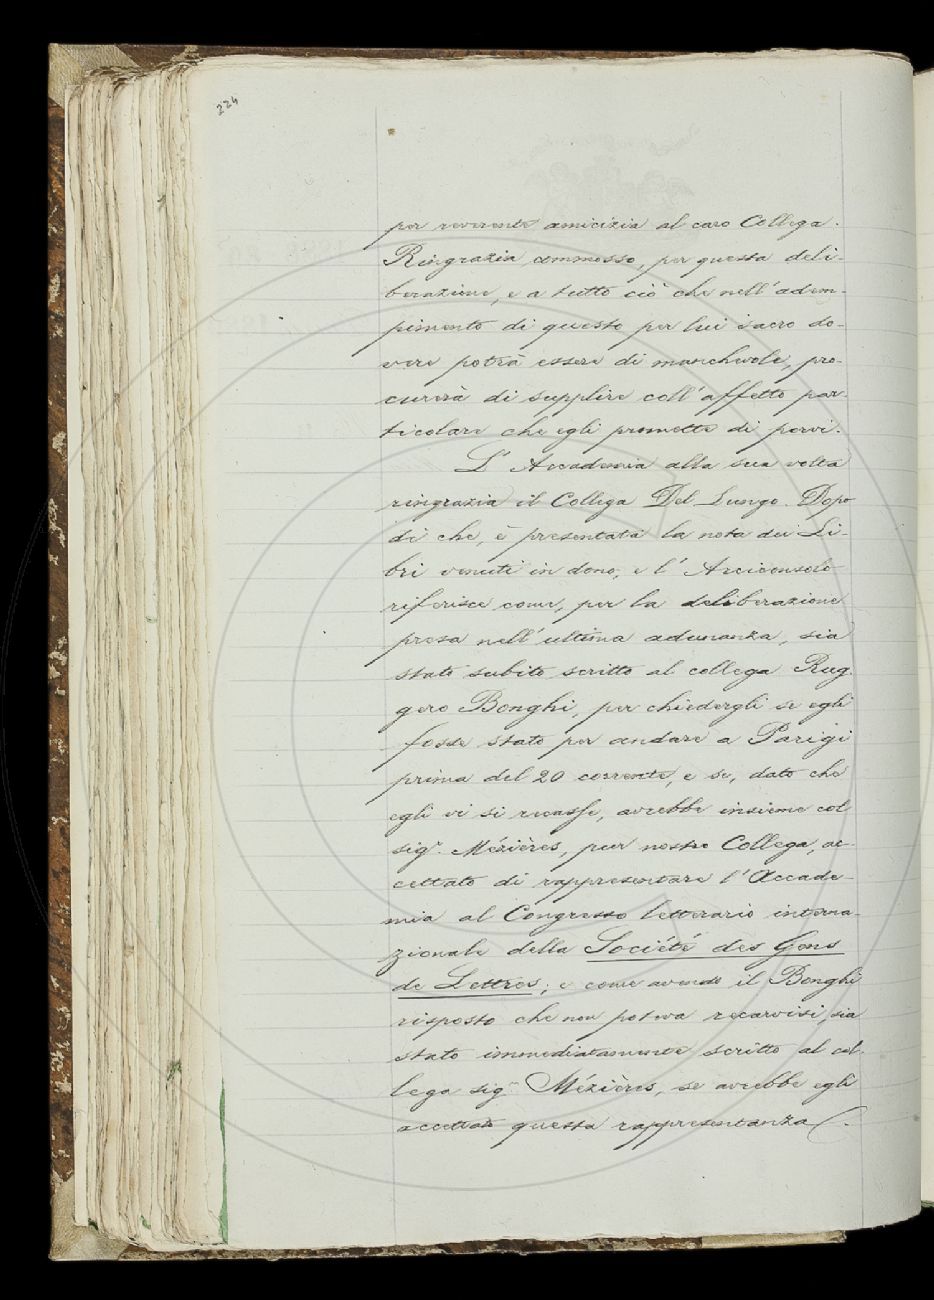 224
per reverente amicizia al caro Collega.
Ringrazia commosso, per questa deli-
berazione, e a tutto ciò che nell'adem-
pimento di questo per lui sacro do-
vere potrà essere di manchevole, pro-
curerà di supplire coll'affetto par-
ticolare che egli promette di porvi.
L'Accademia alla sua volta
ringrazia il Collega Del Lungo. Dopo
di che, è presentata la nota dei Li-
bri venuti in dono, e l'Arciconsolo
riferisce come, per la deliberazione
presa nell'ultima adunanza, sia
stato subito scritto al collega Rug
gero Bonghi, per chiedergli se egli
fosse stato per andare a Parigi
prima del 20 corrente, e se, dato che
egli vi si recasse, avrebbe insieme col
sigr. Mézières, pur nostro Collega, ac-
cettato di rappresentare l'Accade-
mia al Congresso letterario interna-
zionale della Société des Gens
de Lettres; e come avendo il Bonghi
risposto che non poteva recarvisi, sia
stato immediatamente scritto al col
lega sigr Mézières, se avrebbe egli
accettato questa rappresentanza.